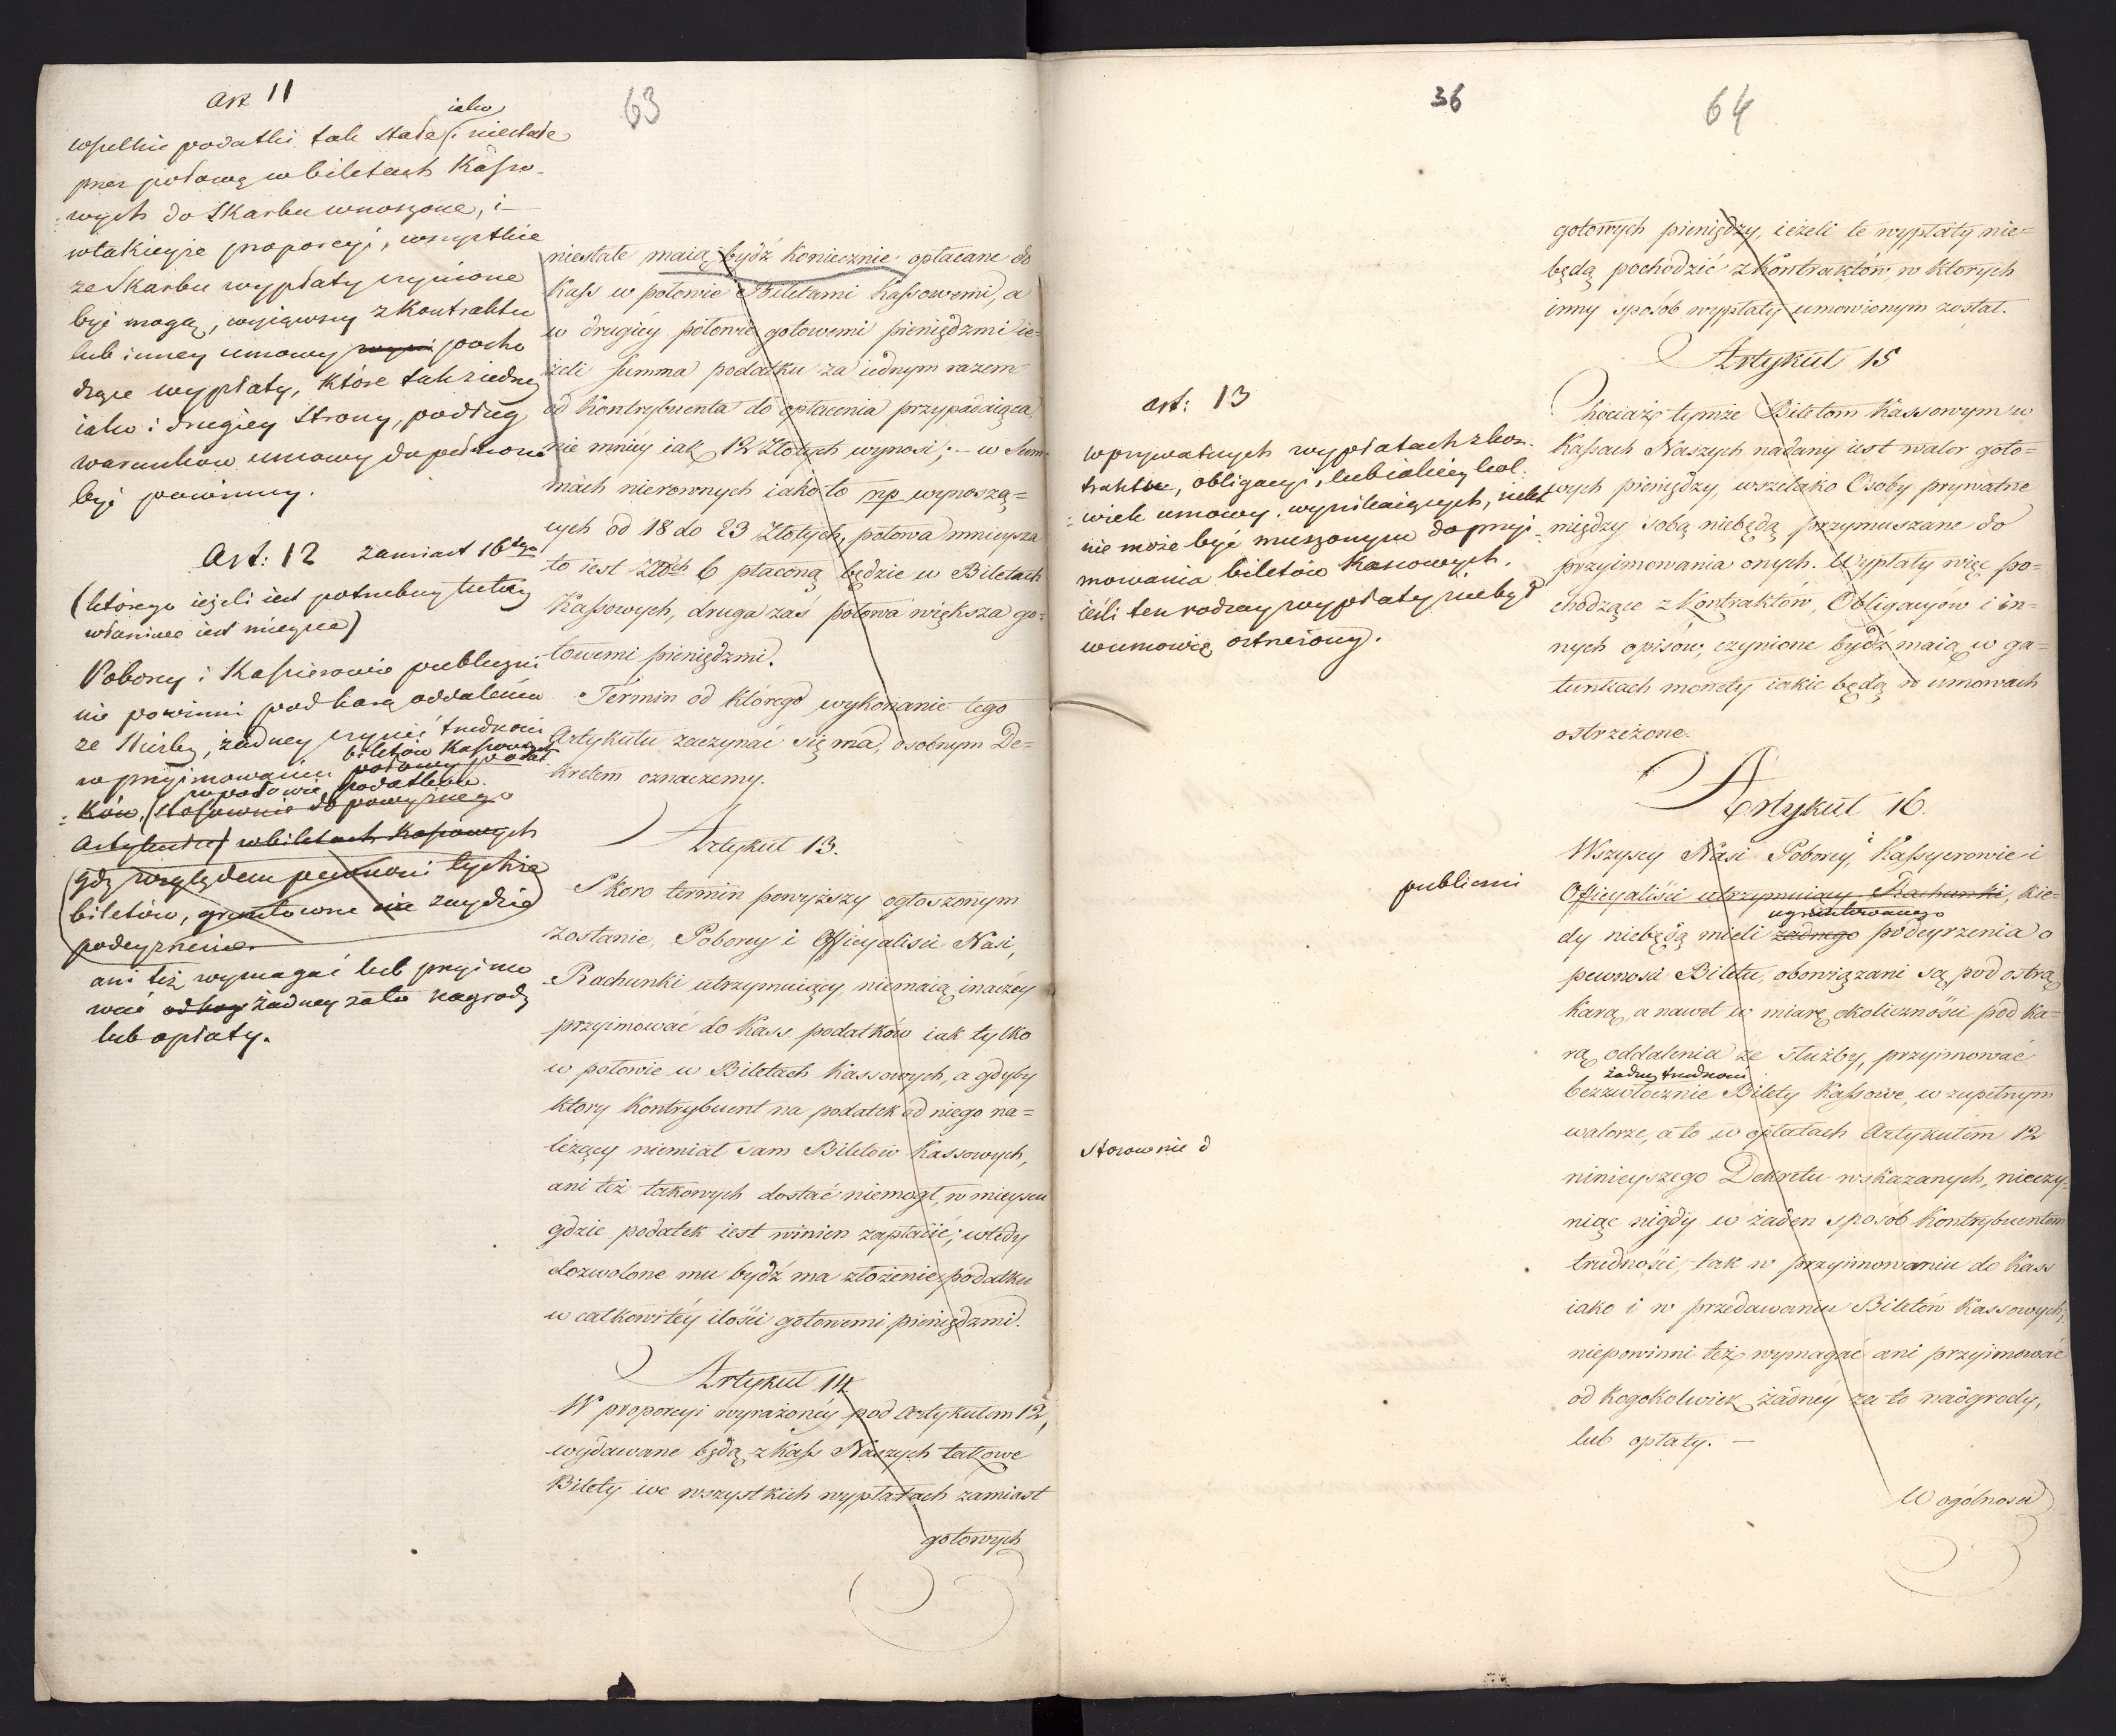 Art 11
63
iako
wszelkie podatki tak stałe i niestałe
przez połowę w biletach Kasso-
:wych do Skarbu wnoszone, i
w takieyże proporcyi, wszystkie
ze Skarbu wypłaty czynione
być mogą, wyiąwszy z Kontraktu
lub inney umowy pocho
dzące wypłaty, które tak z iedney
iako i drugiey Strony, podług
warunków umowy dopełnione
być powinny.
Art: 12 zamiast 16tego
(którego ieżeli iest potrzebny tutay
właściwe iest mieysce)
Poborcy i Kassierowie publiczni
nie powinni pod karą oddalenia
ze Służby, żadney czynić trudności
biletów Kassowych
w przyimowaniu połowy podat
w połowie podatków.
:ków, (stosownie do powyższego
Artykułu) w biletach Kassowych
(gdy względem pewności tychże
biletów, gruntowne nie zaydzie)
podeyrzenie.
ani też wymagać lub przyimo
wać od kogo żadney za to nagrody
lub opłaty.
niestałe maią bydź koniecznie opłacane do
Kass w połowie Biletami Kassowemi, a
w drugiéy połowie gotowemi pieniędzmi ie=
żeli Summa podatku za iednym razem
od Kontrybuenta do opłacenia przypadaiąca
nie mniéy iak 12 Złotych wynosi; – w Sum-
mach nierownych iako to np wynoszą=
cych od 18 do 23 Złotych, połowa mnieysza
to iest Złłch 6 płaconą będzie w Biletach
Kassowych, druga zaś połowa większa go=
towemi pieniędzmi.
Termin od którego wykonanie tego
Artykułu zaczynać się ma, osobnym De=
kretem oznaczemy.
Artykuł 13.
Skoro termin powyższy ogłoszonym
zostanie, Poborcy i Officyalisci Nasi,
Rachunki utrzymuiący, niemaią inaczéy
przyimować do Kass podatków iak tylko
w połowie w Biletach Kassowych, a gdyby
ktory Kontrybuent na podatek od niego na=
leżący niemiał sam Biletów Kassowych,
ani też takowych dostać niemogł, w mieyscu
gdzie podatek iest winien zapłacić; wtedy
dozwolone mu bydź ma złożenie podatku
w całkowitéy ilości gotowemi pieniędzmi.
Artykuł 14
W proporcyi wyrażonéy pod Artykułem 12,
wydawane będą z Kass Naszych takowe
Bilety we wszystkich wypłatach zamiast
gotowych
36
64
art: 13
w prywatnych wypłatach z kon-
traktu, obligacyi, lub iakiey kol-
:wiek umowy wynikaiących, nikt
nie może być muszonym do przyi-
mowania biletów kassowych,
ieśli ten rodzay wypłaty nie był
w umowie ostrzeżony.
publiczni
Stosownie d
gotowych pieniędzy, ieżeli te wypłaty nie=
będą pochodzić z Kontraktów, w ktorych
inny sposób wypłaty umowionym został.
Artykuł 15
Chociaż tymże Biletom Kassowym w
Kassach Naszych nadany iest walor goto=
wych pieniędzy, wszelako Osoby prywatne
między sobą niebędą przymuszane do
przyimowania onych. Wypłaty więc po=
chodzące z Kontraktów, Obligacyów i in=
nych opisów, czynione bydź maią w ga=
tunkach monety iakie będą w umowach
ostrzeżone.
Artykuł 16.
Wszyscy Nasi Poborcy, i Kassyerowie i
Officyaliści utrzymuiący Rachunki, kie=
ugruntowanego
dy niebędą mieli żadnego podeyrzenia o
pewności Biletu, obowiązani są pod ostrą
karą, a nawet w miarę okoliczności pod ka=
rą oddalenia ze służby, przyimować
żadney trudności
bezzwłocznie Bilety Kassowe, w zupełnym
walorze, a to w opłatach Artykułem 12
ninieyszego Dekretu wskazanych, nieczy=
niąc nigdy w żaden sposób Kontrybuentom
trudności, tak w przyimowaniu do Kass
iako i w przedawaniu Biletów Kassowych;
niepowinni też wymagać ani przyimować
od kogokolwiek żadnéy za to nadgrody,
lub opłaty. —
W ogólności